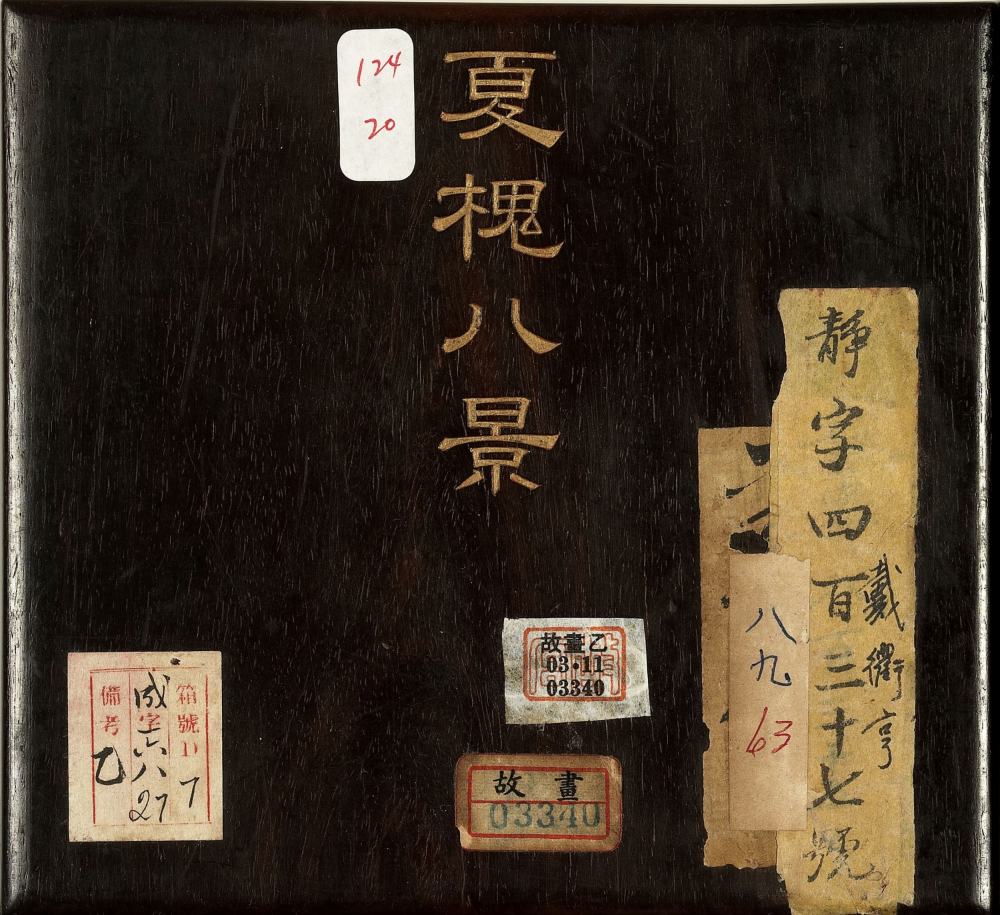 夏槐八景
124
20
靜字四百三十七號
戴衢亨
八九
63
故畫乙
03·11
03340
故畫
03340
箱號D 7
成字六八
27
備考 乙